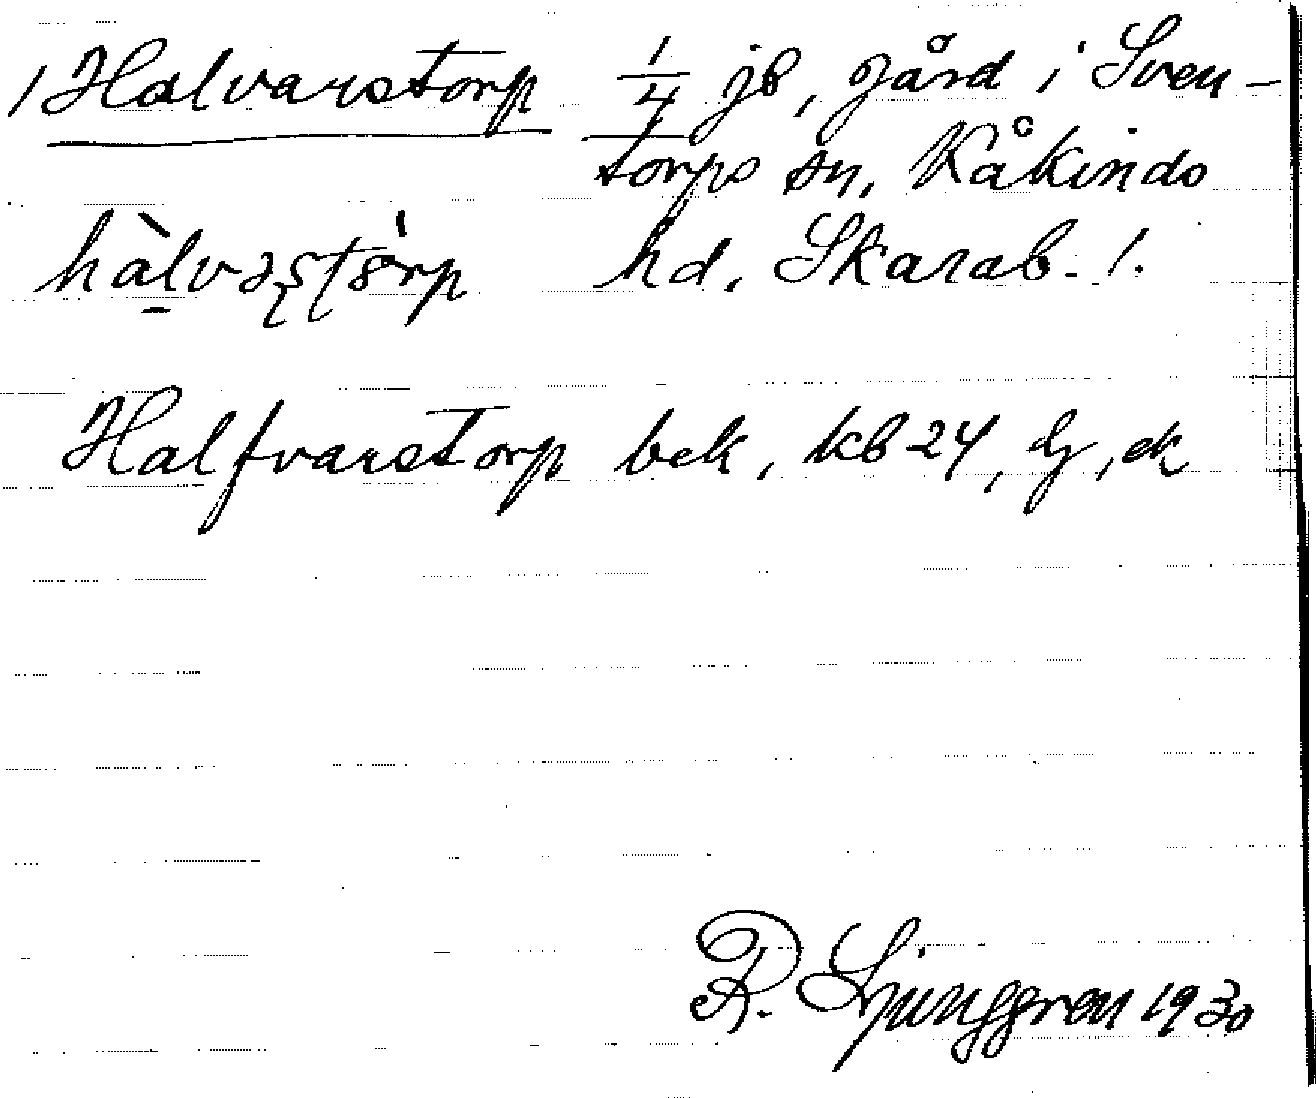 1 Halvarstorp 1/4 jb, gård i Sven-
torps sn, Kåkinds
hd, Skarab. l.
Halfvarstorp bek, kb 24, ek
R. Ljunggren 1930